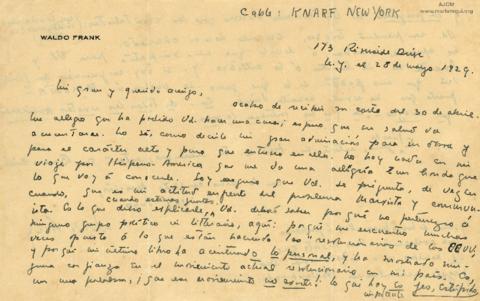 AJCM
www.mariategui.org
Cable: KNARF NEW YORK
WALDO FRANK
173 Riverside Drive
N.Y. el 28 de mayo 1929.
Mi gran y querido amigo,
acabo de recibir su carta del 30 de abril.
Me alegro que ha podido Ud. hacer una casa; espero que su salud va
aumentando. No sé, como decirle mi gran admiración para su obra y
para el carácter alto y puro que entreveo en ella. No hay nada en mi
viaje por Hispano-America que me da una alegría más honda que
lo que voy á conocerle. Soy seguro que Ud. se pregunta, de vez en
cuando, que es mi actitud enfrente del problema Marxista y comunista
cuando estamos juntos
Ud. deberá saber porqué no pertenezco á
ningun grupo político ni literario, aquí: porqué me encuentro muchas
veces opuesto á lo que están haciendo los "revolucionarios" de los EEUU,
y porqué mi último libro ha acentuado lo personal, y ha mostrado ninguna
confianza en el movimiento actual revolucionario en mi país. Co
que ese movimiento no existe: lo que hay